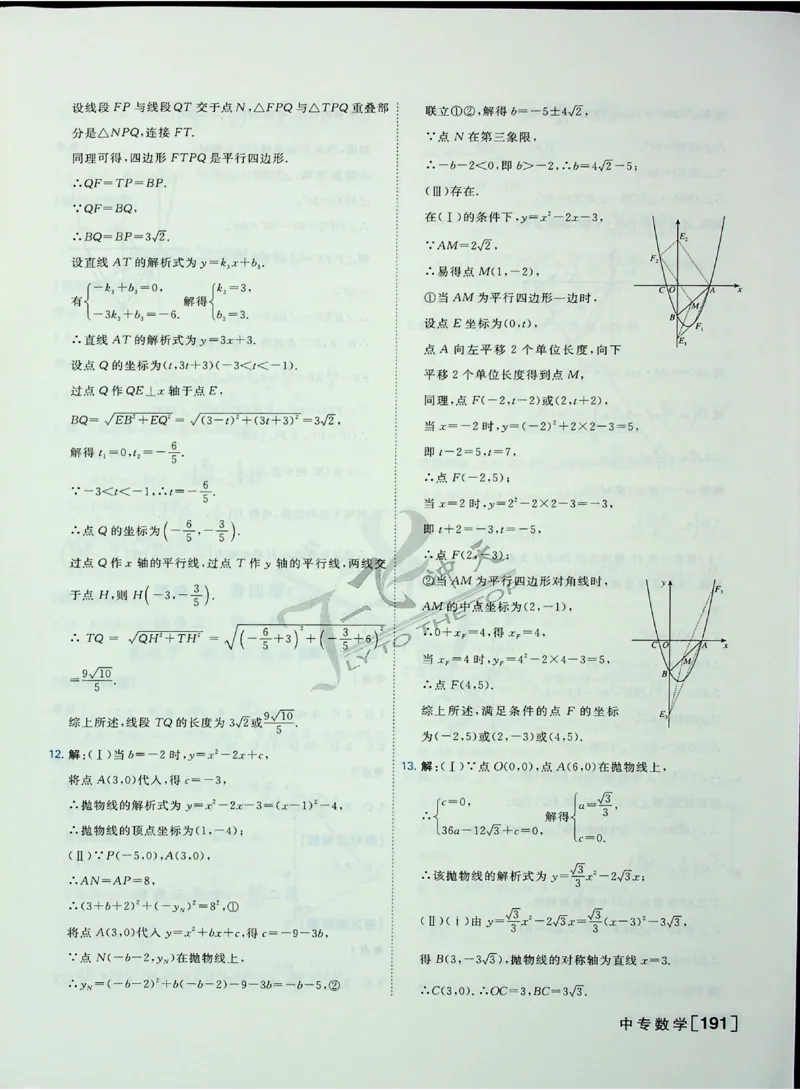 设线段 FP 与线段QT 交于点 N,△FPQ 与△TPQ 重叠部
分是△NPQ,连接 FT.
同理可得,四边形 FTPQ 是平行四边形.
∴QF=TP=BP.
∵QF=BQ,
∴BQ=BP=3√2.
设直线 AT 的解析式为 y=k₃x+b₃.
有{-k₃+b₃=0, -3k₃+b₃=-6. 解得{k₃=3, b₃=3.
∴直线 AT 的解析式为 y=3x+3.
设点 Q 的坐标为(t,3t+3)(-3<t<-1).
过点 Q 作 QE⊥x 轴于点 E,
BQ=√(EB²+EQ²)=√((3-t)²+(3t+3)²)=3√2,
解得 t₁=0,t₂=-6/5.
∵-3<t<-1,∴t=-6/5.
∴点 Q 的坐标为(-6/5,-3/5).
过点 Q 作 x 轴的平行线,过点 T 作 y 轴的平行线,两线交
于点 H,则 H(-3,-3/5).
∴ TQ = √(QH²+TH²) = √((-6/5+3)²+(-3/5+6)²)
=9√10/5.
综上所述,线段 TQ 的长度为 3√2或9√10/5.
12. 解:(Ⅰ)当 b=-2 时,y=x²-2x+c,
将点 A(3,0)代入,得 c=-3,
∴抛物线的解析式为 y=x²-2x-3=(x-1)²-4,
∴抛物线的顶点坐标为(1,-4);
(Ⅱ)∵P(-5,0),A(3,0),
∴AN=AP=8,
∴(3+b+2)²+(-y_N)²=8²,①
将点 A(3,0)代入 y=x²+bx+c,得 c=-9-3b,
∵点 N(-b-2,y_N)在抛物线上,
∴y_N=(-b-2)²+b(-b-2)-9-3b=-b-5,②
联立①②,解得 b=-5±4√2,
∵点 N 在第三象限,
∴-b-2<0,即 b>-2,∴b=4√2-5;
(Ⅲ)存在.
在(Ⅰ)的条件下,y=x²-2x-3,
∵AM=2√2,
∴易得点 M(1,-2),
①当 AM 为平行四边形一边时,
设点 E 坐标为(0,t),
点 A 向左平移 2 个单位长度,向下
平移 2 个单位长度得到点 M,
同理,点 F(-2,t-2)或(2,t+2),
当 x=-2 时,y=(-2)²+2×2-3=5,
即 t-2=5,t=7,
∴点 F(-2,5);
当 x=2 时,y=2²-2×2-3=-3,
即 t+2=-3,t=-5,
∴点 F(2,-3);
②当 AM 为平行四边形对角线时,
AM 的中点坐标为(2,-1),
∴0+x_F=4,得 x_F=4,
当 x_F=4 时,y_F=4²-2×4-3=5,
∴点 F(4,5).
综上所述,满足条件的点 F 的坐标
为(-2,5)或(2,-3)或(4,5).
E₂
F₂
C O A x
M
B
F₁
E₁
y
F₃
C O A x
M
B
E₃
13. 解:(Ⅰ)∵点 O(0,0),点 A(6,0)在抛物线上,
∴{c=0, 36a-12√3+c=0, 解得{a=√3/3, c=0.
∴该抛物线的解析式为 y=√3/3x²-2√3x;
(Ⅱ)(ⅰ)由 y=√3/3x²-2√3x=√3/3(x-3)²-3√3,
得 B(3,-3√3),抛物线的对称轴为直线 x=3.
∴C(3,0). ∴OC=3,BC=3√3.
一飞冲天
FLY TO THE TOP
中专数学[191]